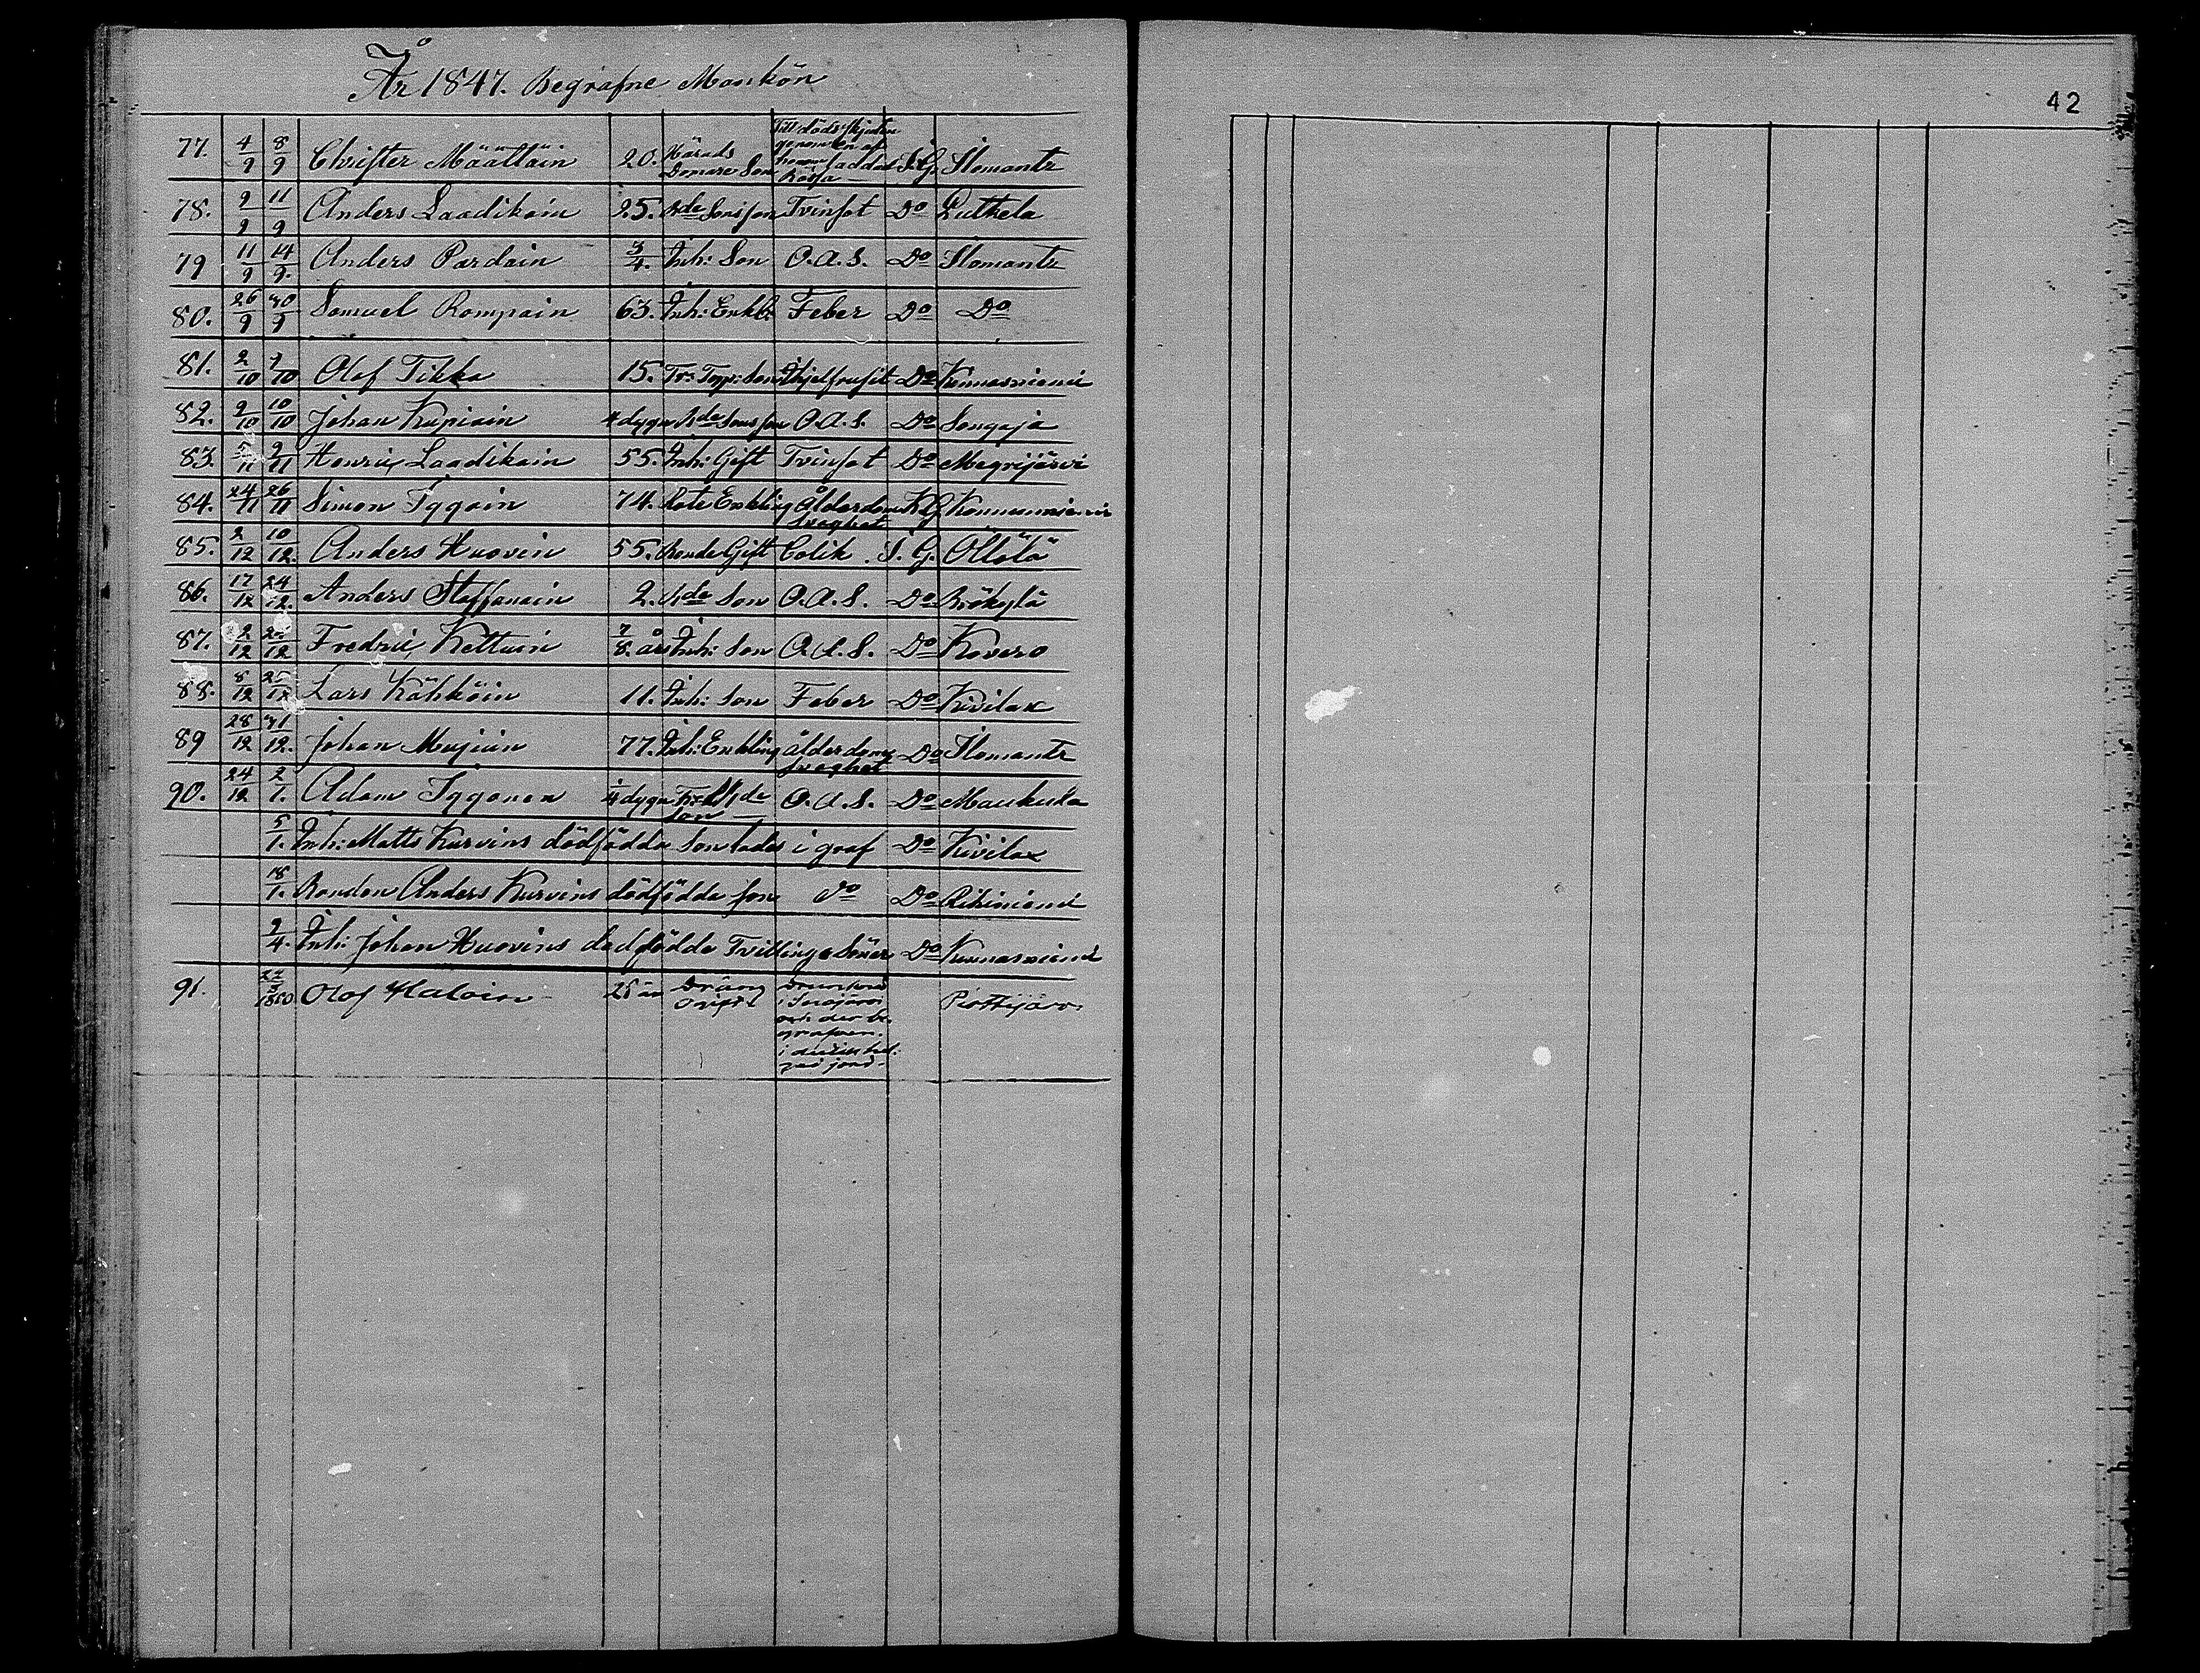 År 1847. Begrafne Mankön
42
77. 4/9 8/9 Christer Määttäin 20. Härads Domare Son Till döds skjuten genom en af honom laddad Kössa S.G. Ilomants
78. 9/9 11/9 Anders Laadikain 25. Bde Sonsson Tvinsot Do Luthela
79 11/9 14/9. Anders Pardain 3/4. Inh: Son O.A.S. Do Ilomants
80. 26/9 30/9 Samuel Rompain 63. Inh: Enkl: Feber Do Do
81. 2/10 7/10 Olof Tikka 15. Tr: Son Do Kuunasniemi
82. 9/10 10/10 Johan Kupiain 4 dygn Bde Sonsson O.A.S. Do Songaja
83. 5/11 9/11 Henric Laadikain 55. Inh: Gift Tvinsot Do Megrijärvi
84. 24/11 26/11 Simon Iggain 74. Rote Enkling Ålderdoms svaghet K.G. Kuunasniemi
85. 2/12 10/12. Anders Huovin 55. Bonde Gift Colik. S. G. Öllölä
86. 17/12 24/12. Anders Staffanain 2. Bde Son O.A.S. Do Miökylä
87. 2/12 25/12 Fredric Kettuin 7/8. års Inh: Son O.A.S. Do Kovero
88. 8/12 25/12 Lars Kähköin 11. Inh: Son Feber Do Kivilax
89 28/12 31/12. Johan Mujuin 77. Inh: Enkling ålderdoms svaghet Do Ilomants
90. 24/12 2/1. Adam Iggonen 1/4 dygn Bde Son O.A.S. Do Maukula
5/1. Inh: Matts Kurvins dödfödda Son lades i graf Do Kivilax
18/1. Bonden Anders Kurvins dödfödda son do Do
9/4. Inh: Johan Huovins dödfödda Tvillinge Söner Do Kuunasniemi
91. 1850 Olof Haloin 25 år Dräng ogift Drunknad i och der begrafven. i jord.